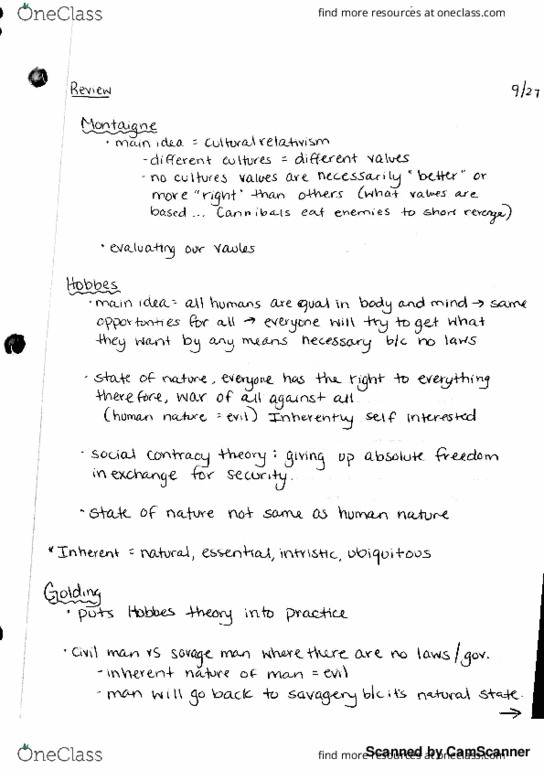 OneClass
find more resources at oneclass.com
Review
9/27
Montaigne
· main idea = cultural relativism
- different cultures = different values
- no cultures values are necessarily "better" or
more "right" than others (what values are
based ... Cannibals eat enemies to short revenge)
· evaluating our vaules
Hobbes
· main idea = all humans are equal in body and mind → same
opportunties for all → everyone will try to get what
they want by any means necessary b/c no laws
· state of nature, everyone has the right to everything
therefore, war of all against all
(human nature = evil) Inherently self interested
· social contracy theory : giving up absolute freedom
in exchange for security.
· state of nature not same as human nature
* Inherent = natural, essential, intristic, ubiquitous
Golding
· puts Hobbes theory into practice
· Civil man vs savage man where there are no laws/gov.
- inherent nature of man = evil
- man will go back to savagery b/c it's natural state.
→
OneClass
find more resources at oneclass.com
Scanned by CamScanner